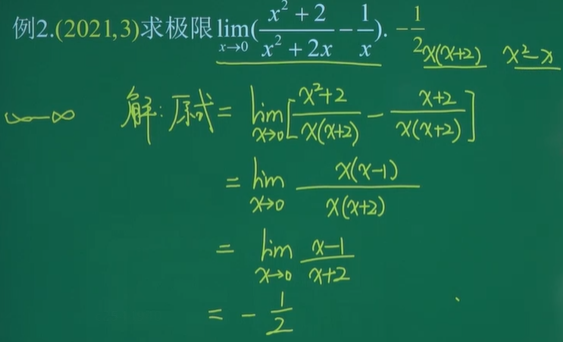 例2.(2021,3)求极限lim_{x→0}(\frac{x²+2}{x²+2x} - \frac{1}{x}). -\frac{1}{2} x(x+2) x²-x
∞-∞ 解:原式= lim_{x→0}[\frac{x²+2}{x(x+2)} - \frac{x+2}{x(x+2)}]
= lim_{x→0} \frac{x(x-1)}{x(x+2)}
= lim_{x→0} \frac{x-1}{x+2}
= -\frac{1}{2}